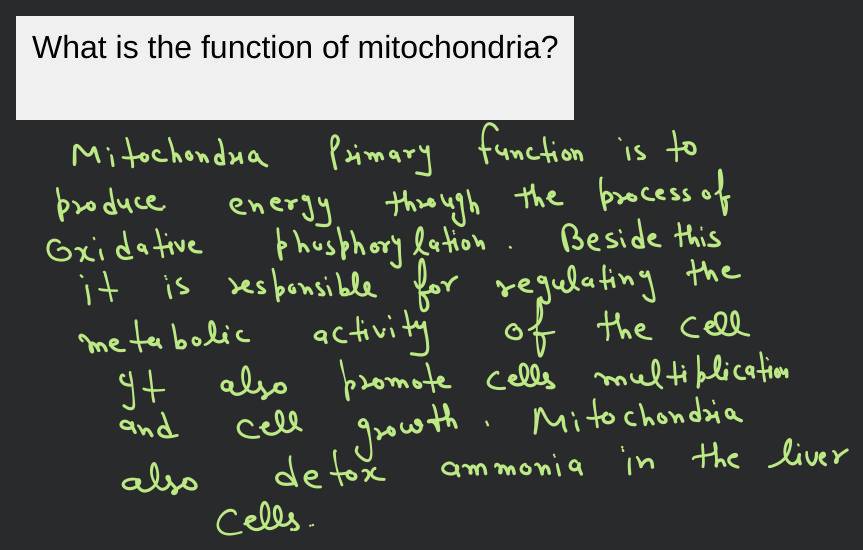 What is the function of mitochondria?
Mitochondria Primary function is to
produce energy through the process of
Oxidative phosphorylation. Beside this
it is responsible for regulating the
metabolic activity of the cell
It also promote cells multiplication
and cell growth. Mitochondria
also detox ammonia in the liver
Cells.